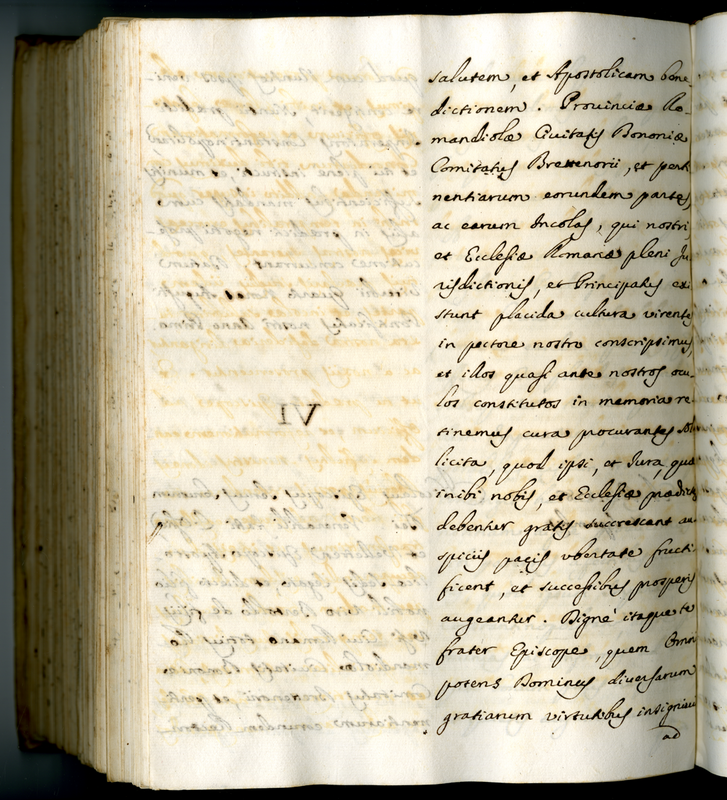 salutem, et Apostolicam bene-
dictionem. Provinciæ Ro-
mandiolæ Civitatis Bononiæ
Comitatus Brettenorii, et perti
nentiarum eorundem partes,
ac earum Incolas, qui nostri
et Ecclesiæ Romanæ pleni Ju
risdictionis, et Principatus exi
stunt placida cultura virentes
in pectore nostro conscripsimus,
et illos quasi ante nostros ocu
los constitutos in memoria re
tinemus cura procurantes sol
licita, quod ipsi, et Jura, quæ
inibi nobis, et Ecclesiæ prædictæ
debentur gratis succrescant au
spiciis pacis ubertate fructi
ficent, et successibus prosperis
augeantur. Dignè itaque te
frater Episcope, quem Omni
potens Dominus diversarum
gratiarum virtutibus insignivit
ad